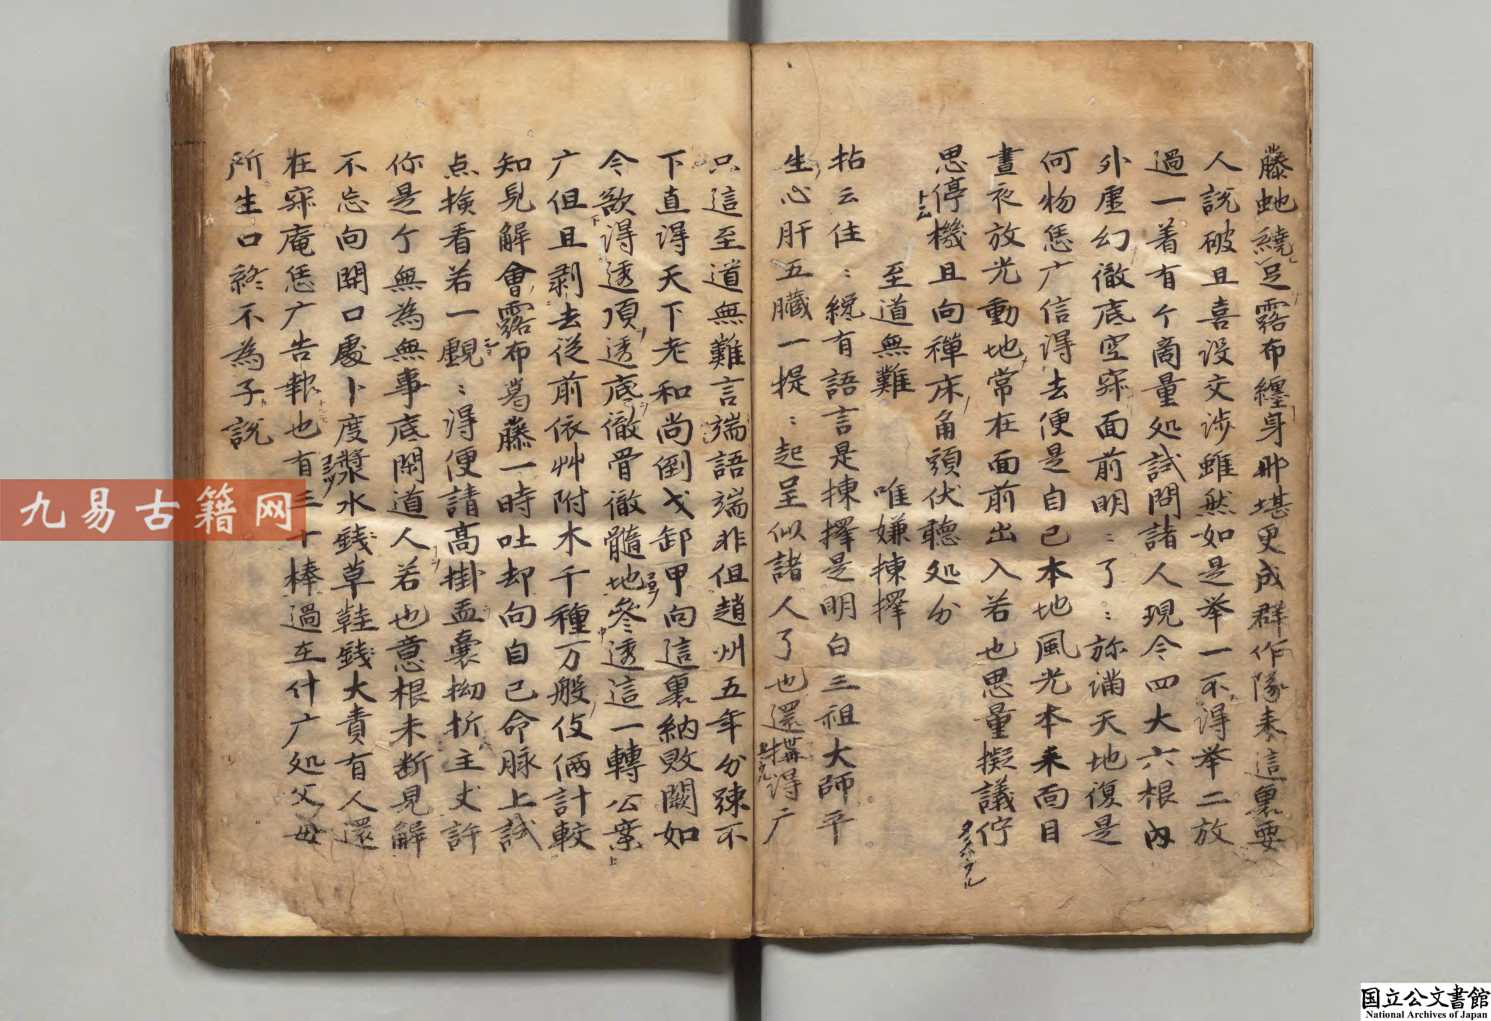 藤虵繞足露布纏身那堪更成群作隊来這裏要
人説破且喜没交渉雖然如是举一不得举二放
過一着有个商量処試問諸人現今四大六根内
外虚幻徹底空寂面前明〻了〻弥満天地復是
何物恁广信得去便是自己本地風光本来面目
晝夜放光動地常在面前出入若也思量擬議佇
思停機且向禅床角頭伏聴処分
至道無難 唯嫌揀擇
拈云住〻纔有語言是揀擇是明白三祖大師平
生心肝五臓一提〻起呈似諸人了也還搆得广
只這至道無難言端語端非但趙州五年分疎不
下直得天下老和尚倒戈卸甲向這裏納敗闕如
今欲得透頂透底徹骨徹髓地参透這一轉公案
广但且剥去従前依艸附木千種万般伎倆計較
知見解會露布葛藤一時吐却向自己命脉上試
点検看若一覰〻得便請高掛盂囊拗折主丈許
你是个無為無事底閑道人若也意根未断見解
不忘向開口處卜度漿水錢草鞋錢大責有人還
在寂庵恁广告報也有三十棒過在什广処父母
所生口終不為子説
九易古籍网
国立公文書館
National Archives of Japan